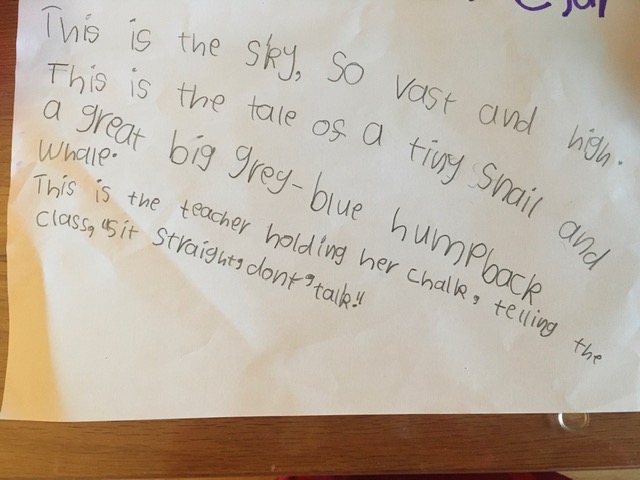 This is the sky, so vast and high.
This is the tale of a tiny snail and
a great big grey-blue humpback
whale.
This is the teacher holding her chalk, telling the
class, "sit straight, dont, talk!"